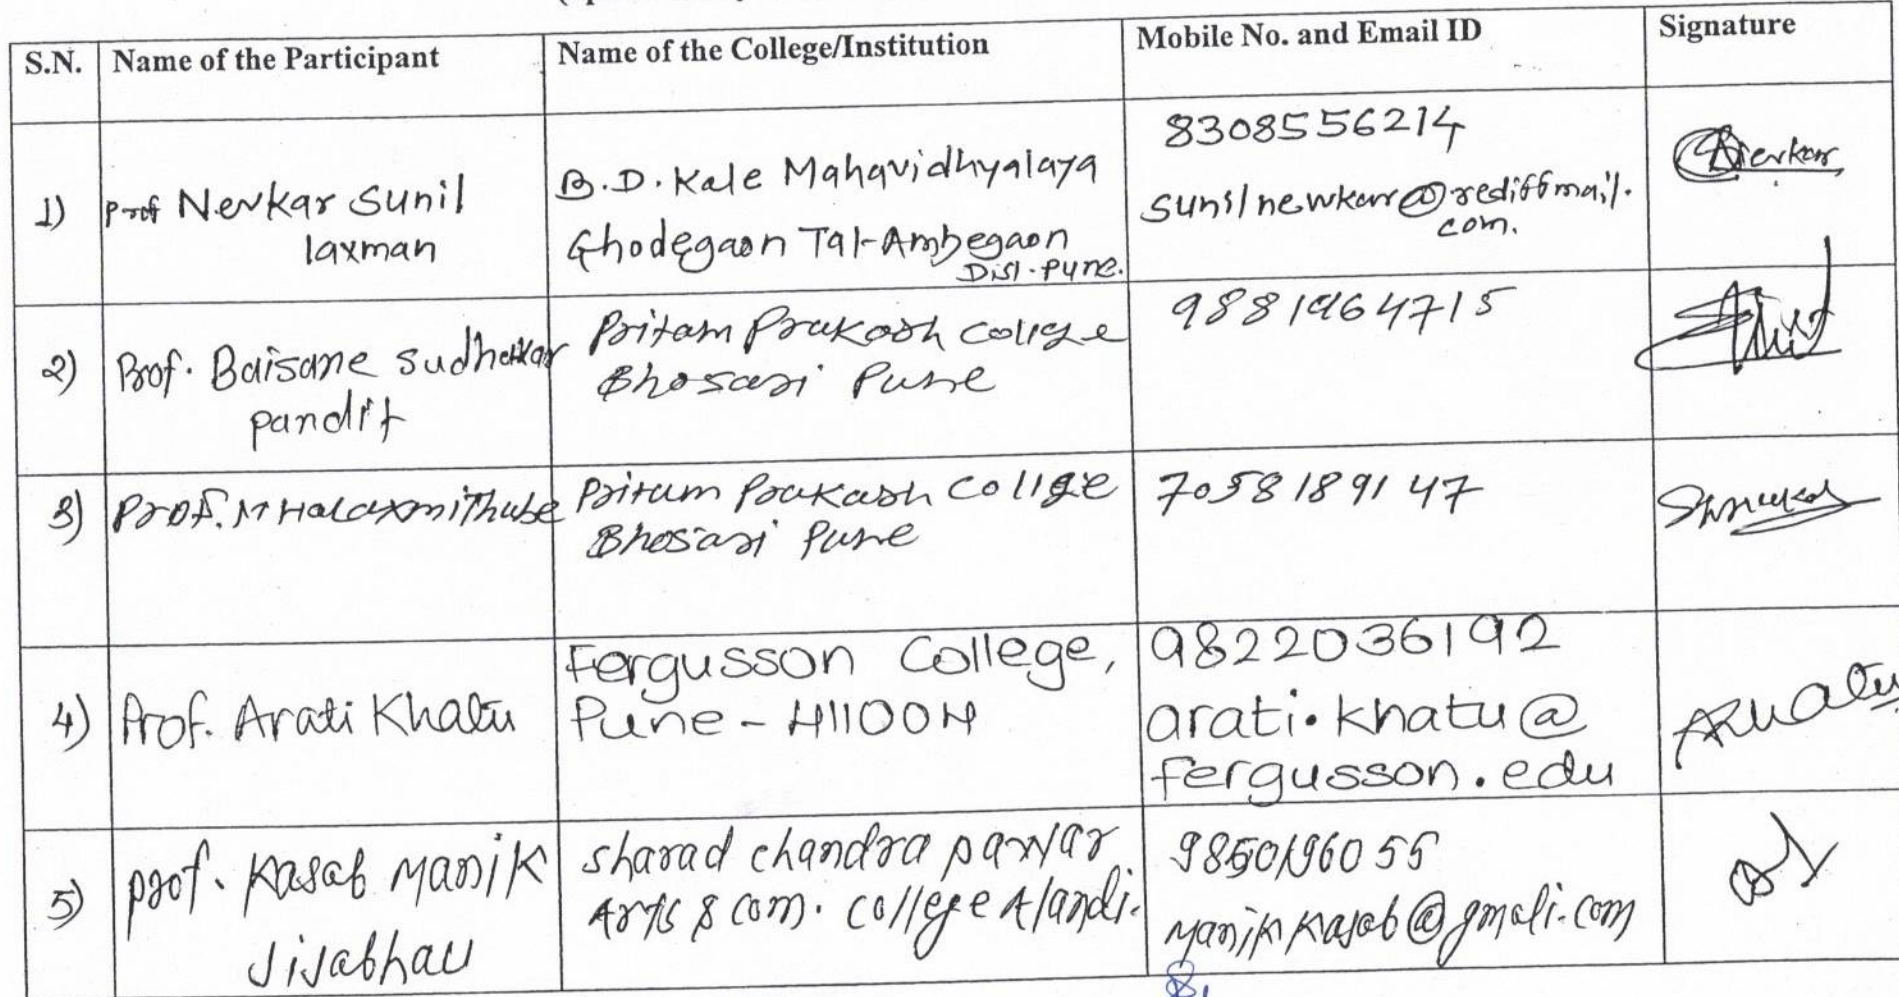 S.N. Name of the Participant Name of the College/Institution Mobile No. and Email ID Signature
1) Prof Nevkar Sunil laxman
B.D. Kale Mahavidhyalaya
Ghodegaon Tal-Ambegaon
Dist-Pune.
8308556214
sunilnewkar@rediffmail.
com.
Nevkar
2) Prof. Baisane Sudhakar
pandit
Pritam Prakash College
Bhosari Pune
9881964715
3) Prof. Mahalaxmi Thube
Pritam Prakash College
Bhosari Pune
7058189147
4) Prof. Arati Khatu
Fergusson College,
Pune - 411004
9822036192
arati.khatu@
fergusson.edu
AKhatu
5) prof. Kasab Manik
Jijabhau
sharad chandra pawar
Arts & com. college Alandi.
9850196055
Manikkasab@gmali.com